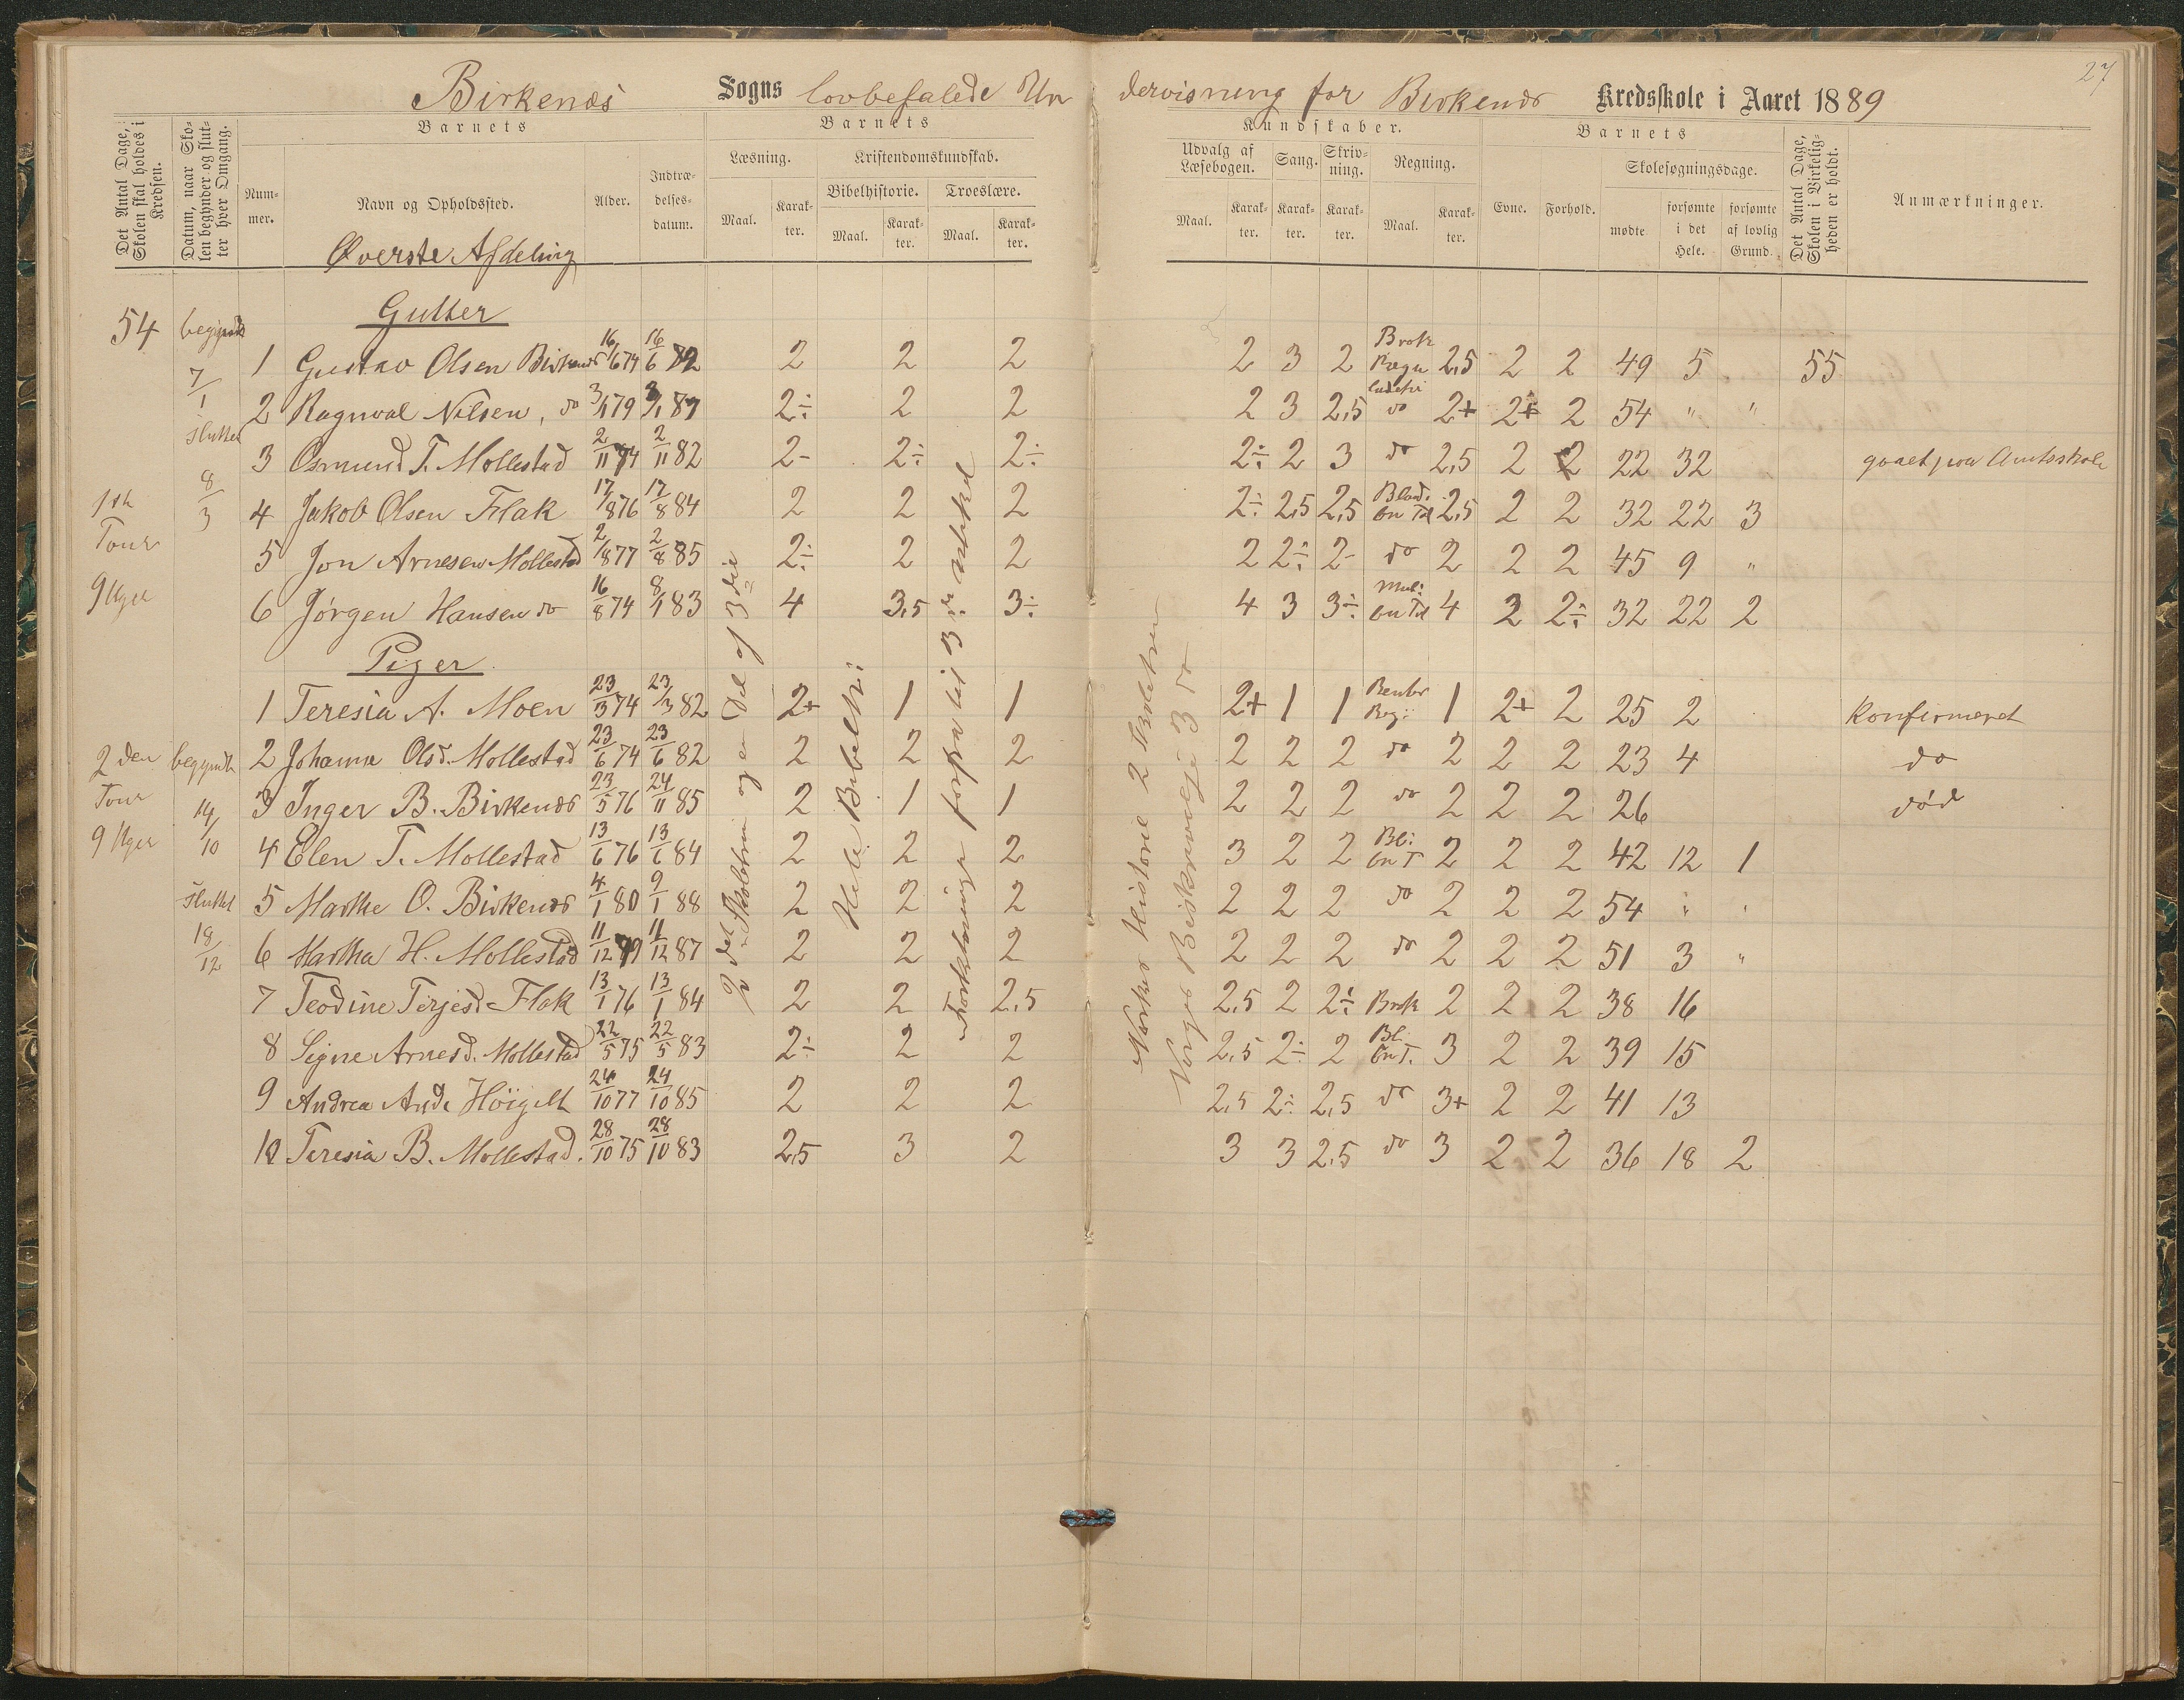 27
Birkenæs Sogns lovbefalede Undervisning for Birkenæs Kredsskole i Aaret 1889
Det Antal Dage, Skolen skal holdes i Kredsen.
Datum, naar Skolen begynder og slutter hver Omgang.
Barnets
Nummer.
Navn og Opholdssted.
Alder.
Indtrædelsesdatum.
Barnets
Læsning.
Maal.
Karakter.
Kristendomskundskab.
Bibelhistorie.
Maal.
Karakter.
Troeslære.
Maal.
Karakter.
Kundskaber.
Udvalg af Læsebogen.
Maal.
Karakter.
Sang.
Karakter.
Skrivning.
Karakter.
Regning.
Maal.
Karakter.
Barnets
Evne.
Forhold.
Skolesøgningsdage.
mødte
forsømte i det Hele.
forsømte af lovlig Grund.
Det Antal Dage, Skolen i Virkeligheden er holdt.
Anmærkninger.
Øverste Afdeling
Gutter
54 begyndt 7/1 sluttet 8/3
1ste Tour 9 Uger
1 Gustav Olsen Birkenæs 16/6 74 16/6 82 2 2 2 2 3 2 Brok Regn 2,5 2 2 49 5 55
2 Ragnval Nilsen, do 3/1 79 87 2÷ 2 2 2 3 2,5 do 2+ 2+ 2 54 " "
3 Osmund T. Mollestad 2/11 74 2/11 82 2- 2÷ 2÷ 2÷ 2 3 do 2,5 2 2 22 32 gaaet paa Amtsskole
4 Jakob Olsen Flak 17/8 76 17/8 84 2 2 2 2÷ 2,5 2,5 Bland. en Tal 2,5 2 2 32 22 3
5 Jon Arnesen Mollestad 2/8 77 2/8 85 2÷ 2 2 2 2÷ 2- do 2 2 2 45 9 "
6 Jørgen Hansen do 16/8 74 8/1 83 4 3,5 3÷ 4 3 3÷ Mul: en Tal 4 3 2÷ 32 22 2
Piger
1 Teresia A. Moen 23/3 74 23/3 82 2+ 1 1 2+ 1 1 Rentes Reg: 1 2+ 2 25 2 Konfirmeret
2den Tour 9 Uger
begyndt 14/10 sluttet 18/12
2 Johanne Olsd. Mollestad 23/6 74 23/6 82 2 2 2 2 2 2 do 2 2 2 23 4 do
3 Inger B. Birkenæs 23/5 76 24/11 85 2 1 1 2 2 2 do 2 2 2 26 død
4 Elen T. Mollestad 13/6 76 13/6 84 2 2 2 3 2 2 Bl: en T 2 2 2 42 12 1
5 Marthe O. Birkenæs 4/1 80 9/1 88 2 2 2 2 2 2 do 2 2 2 54 " "
6 Martha H. Mollestad 11/12 79 11/12 87 2 2 2 2 2 2 do 2 2 2 51 3 "
7 Teodine Terjesd. Flak 13/1 76 13/1 84 2 2 2,5 2,5 2 2÷ Brok 2 2 2 38 16
8 Signe Arnesd. Mollestad 22/5 75 22/5 83 2÷ 2 2 2,5 2÷ 2 Bl. en T. 3 2 2 39 15
9 Andrea Andr. 24/10 77 24/10 85 2 2 2 2,5 2÷ 2,5 do 3+ 2 2 41 13
10 Teresia B. Mollestad. 28/10 75 28/10 83 2,5 3 2 3 3 2,5 do 3 2 2 36 18 2
2det Skoletrin og en Del af 3die
Hele Bibelhi:
Forklaring fra til 3die Artikel
Norges Historie 2 Skoletrin
Norges Beskrivelse 3 do